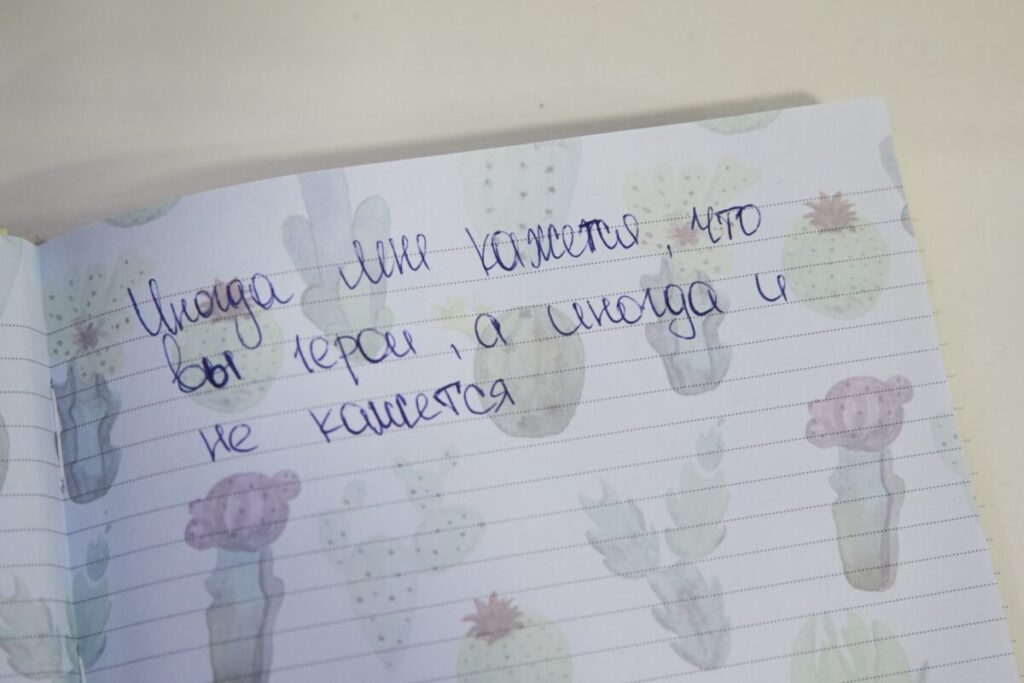 Иногда мне кажется, что
вы герои, а иногда и
не кажется